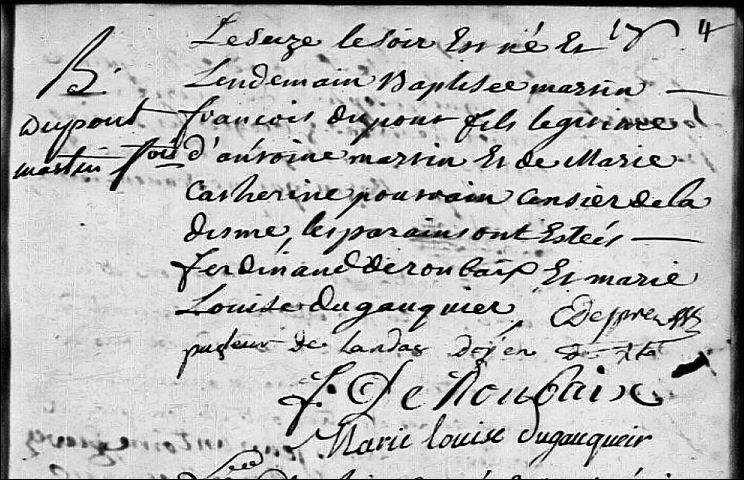 Le Seize le soir Est né Et
Lendemain Baptisée martin
françois dupont fils legitime
d'antoine martin Et de Marie
Catherine pourrain censier de la
disme, les parains ont Estées
ferdinand de roubaix Et marie
Louise dugauquier C Desprez
pasteur de Landas Doyen de
f. De Roubaix
Marie louise dugauqueir
B.
dupont
martin fois
4